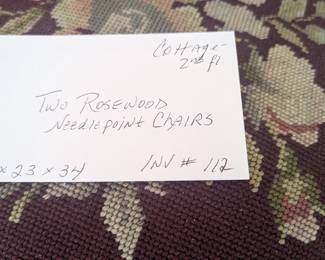 Cottage-
2nd fl
Two Rosewood
Needlepoint Chairs
x 23 x 34
INV # 112